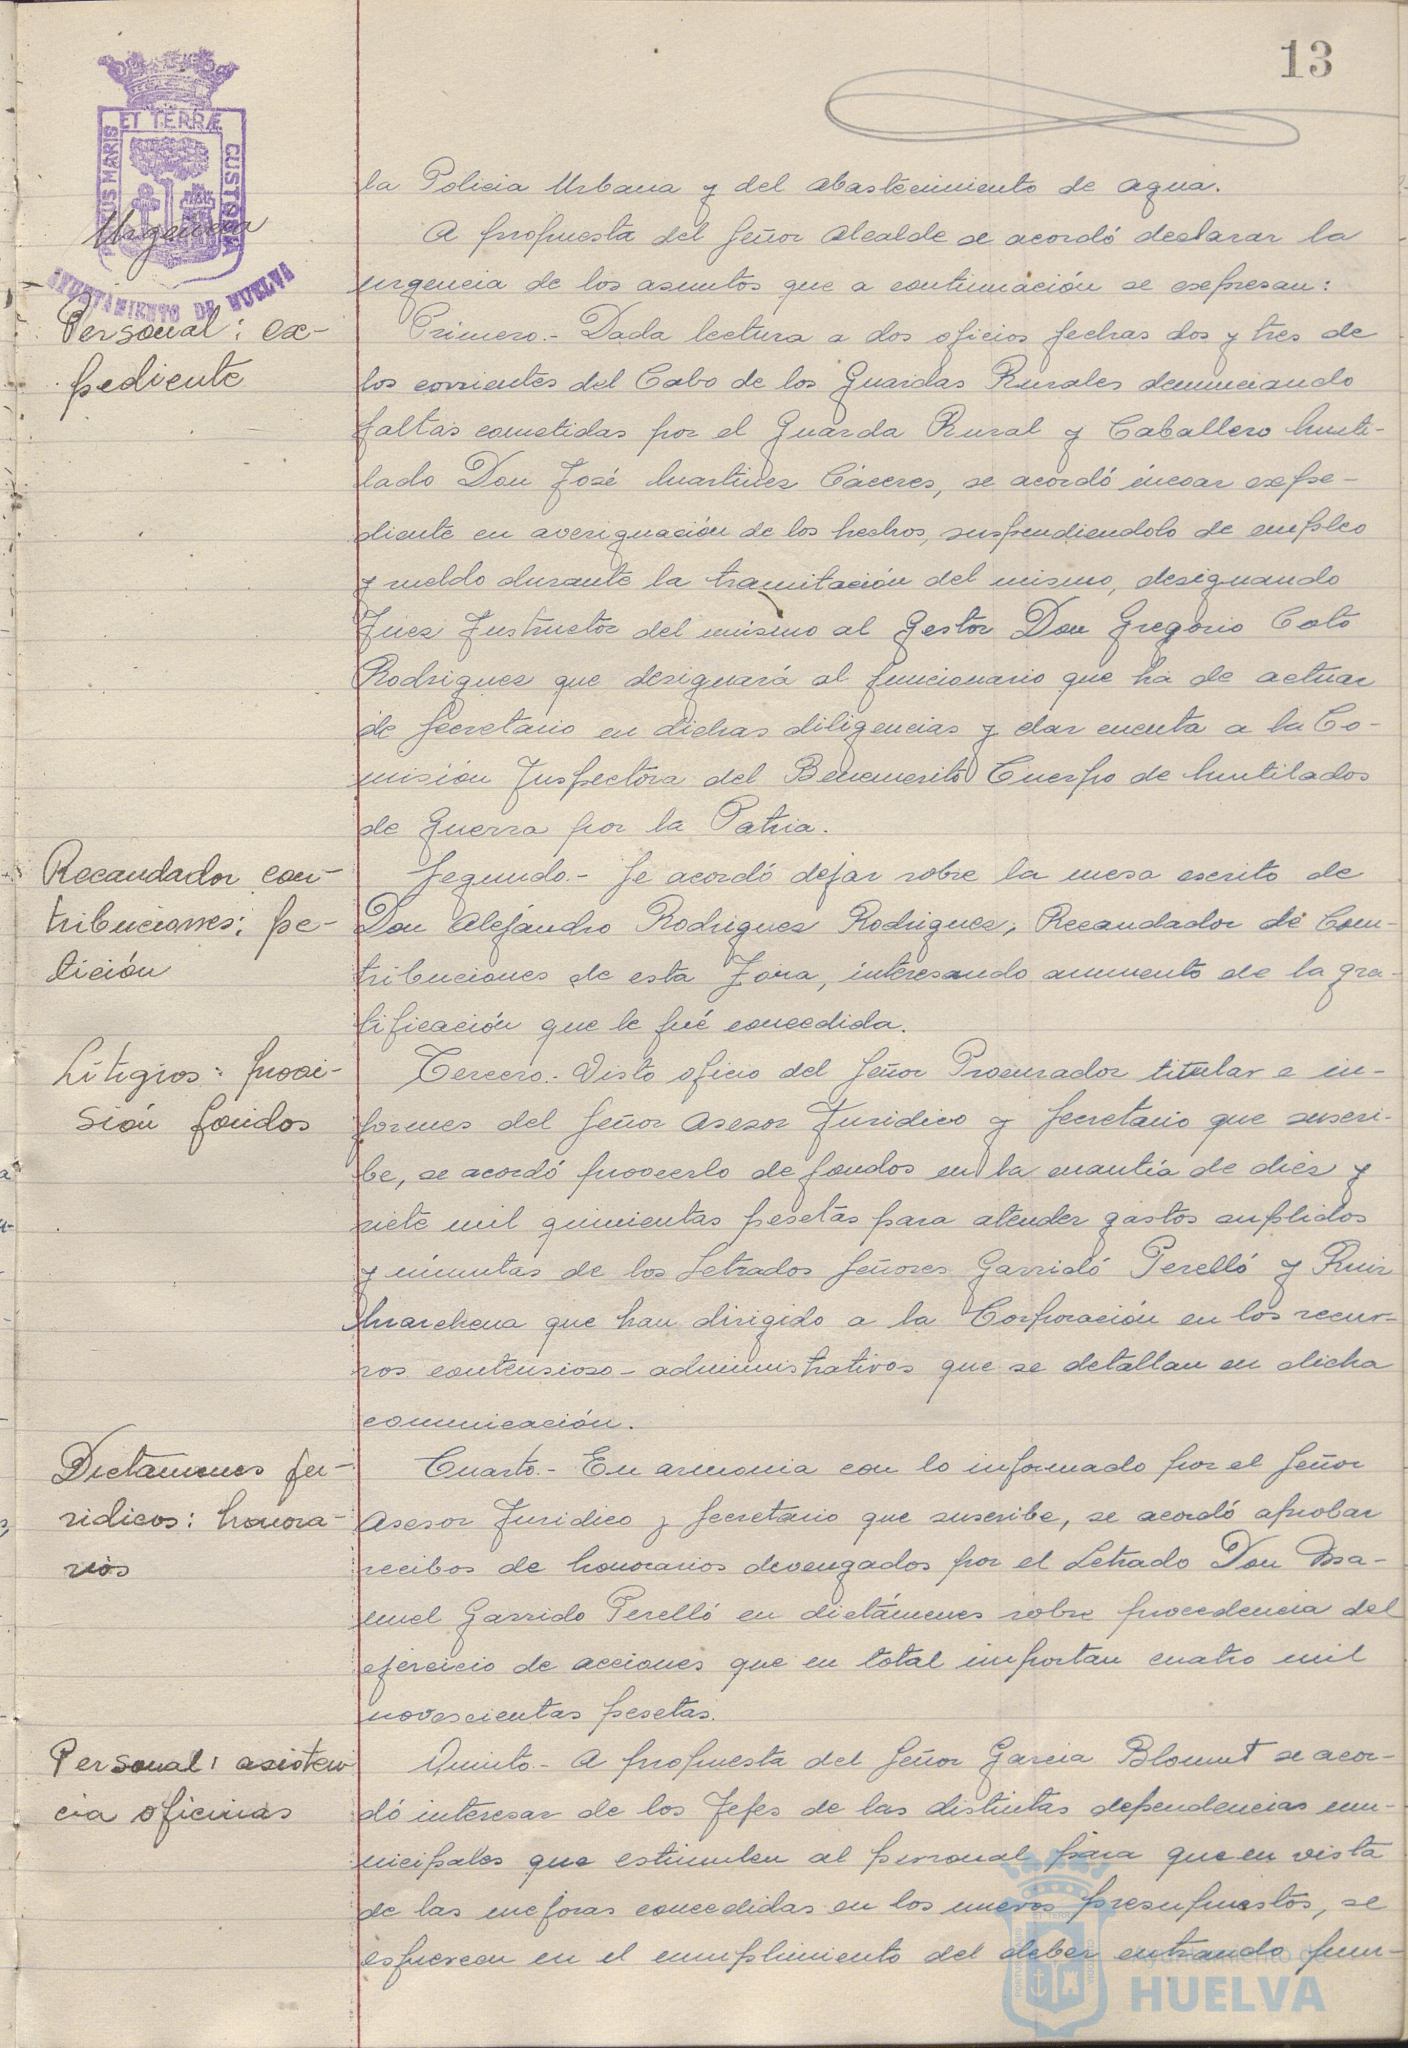 13
PORTUS MARIS ET TERRÆ CUSTODIA
AYUNTAMIENTO DE HUELVA
la Policia Urbana y del abastecimiento de agua.
Urgencia
A propuesta del Señor Alcalde se acordó declarar la
urgencia de los asuntos que a continuación se expresan:
Personal: ex-
pediente
Primero.- Dada lectura a dos oficios fechas dos y tres de
los corrientes del Cabo de los Guardas Rurales denunciando
faltas cometidas por el Guarda Rural y Caballero Muti-
lado Don José Martinez Cáceres, se acordó incoar expe-
diente en averiguación de los hechos, suspendiendolo de empleo
y sueldo durante la tramitación del mismo, designando
Juez Instructor del mismo al Gestor Don Gregorio Coto
Rodriguez que designará al funcionario que ha de actuar
de Secretario en dichas diligencias y dar cuenta a la Co-
misión Inspectora del Benemerito Cuerpo de Mutilados
de Guerra por la Patria.
Recaudador con-
tribuciones: pe-
tición
Segundo.- Se acordó dejar sobre la mesa escrito de
Don Alejandro Rodriguez Rodriguez, Recaudador de Con-
tribuciones de esta Zona, interesando aumento de la gra-
tificación que le fué concedida.
Litigios: provi-
sión fondos
Tercero.- Visto oficio del Señor Procurador titular e in-
formes del Señor Asesor Juridico y Secretario que suscri-
be, se acordó proveerlo de fondos en la cuantía de diez y
siete mil quinientas pesetas para atender gastos suplidos
y minutas de los Letrados Señores Garridó Perelló y Ruiz
Marchena que han dirigido a la Corporación en los recur-
sos contensioso-administrativos que se detallan en dicha
comunicación.
Dictamenes ju-
ridicos: honora-
rios
Cuarto.- En armonia con lo informado por el Señor
Asesor Juridico y Secretario que suscribe, se acordó aprobar
recibos de honorarios devengados por el Letrado Don Ma-
nuel Garrido Perelló en dictámenes sobre procedencia del
ejercicio de acciones que en total importan cuatro mil
novescientas pesetas.
Personal: asisten
cia oficinas
Quinto.- A propuesta del Señor Garcia Blomut se acor-
dó interesar de los Jefes de las distintas dependencias mu-
nicipales que estimulen al personal para que en vista
de las mejoras concedidas en los nuevos presupuestos, se
esfuercen en el cumplimiento del deber entrando pun-
Ayuntamiento de
HUELVA